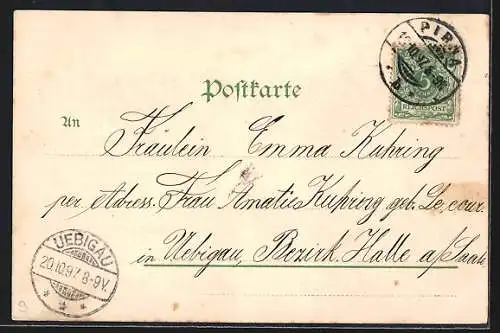 PIRNA
Postkarte
5
REICHSPOST
An
Fräulein Emma Kuhring
per Adress. Frau Amatie Kuhring geb. Lecour.
in Uebigau, Bezirk. Halle a/Saale
UEBIGAU
20.10.97. 8-9V.